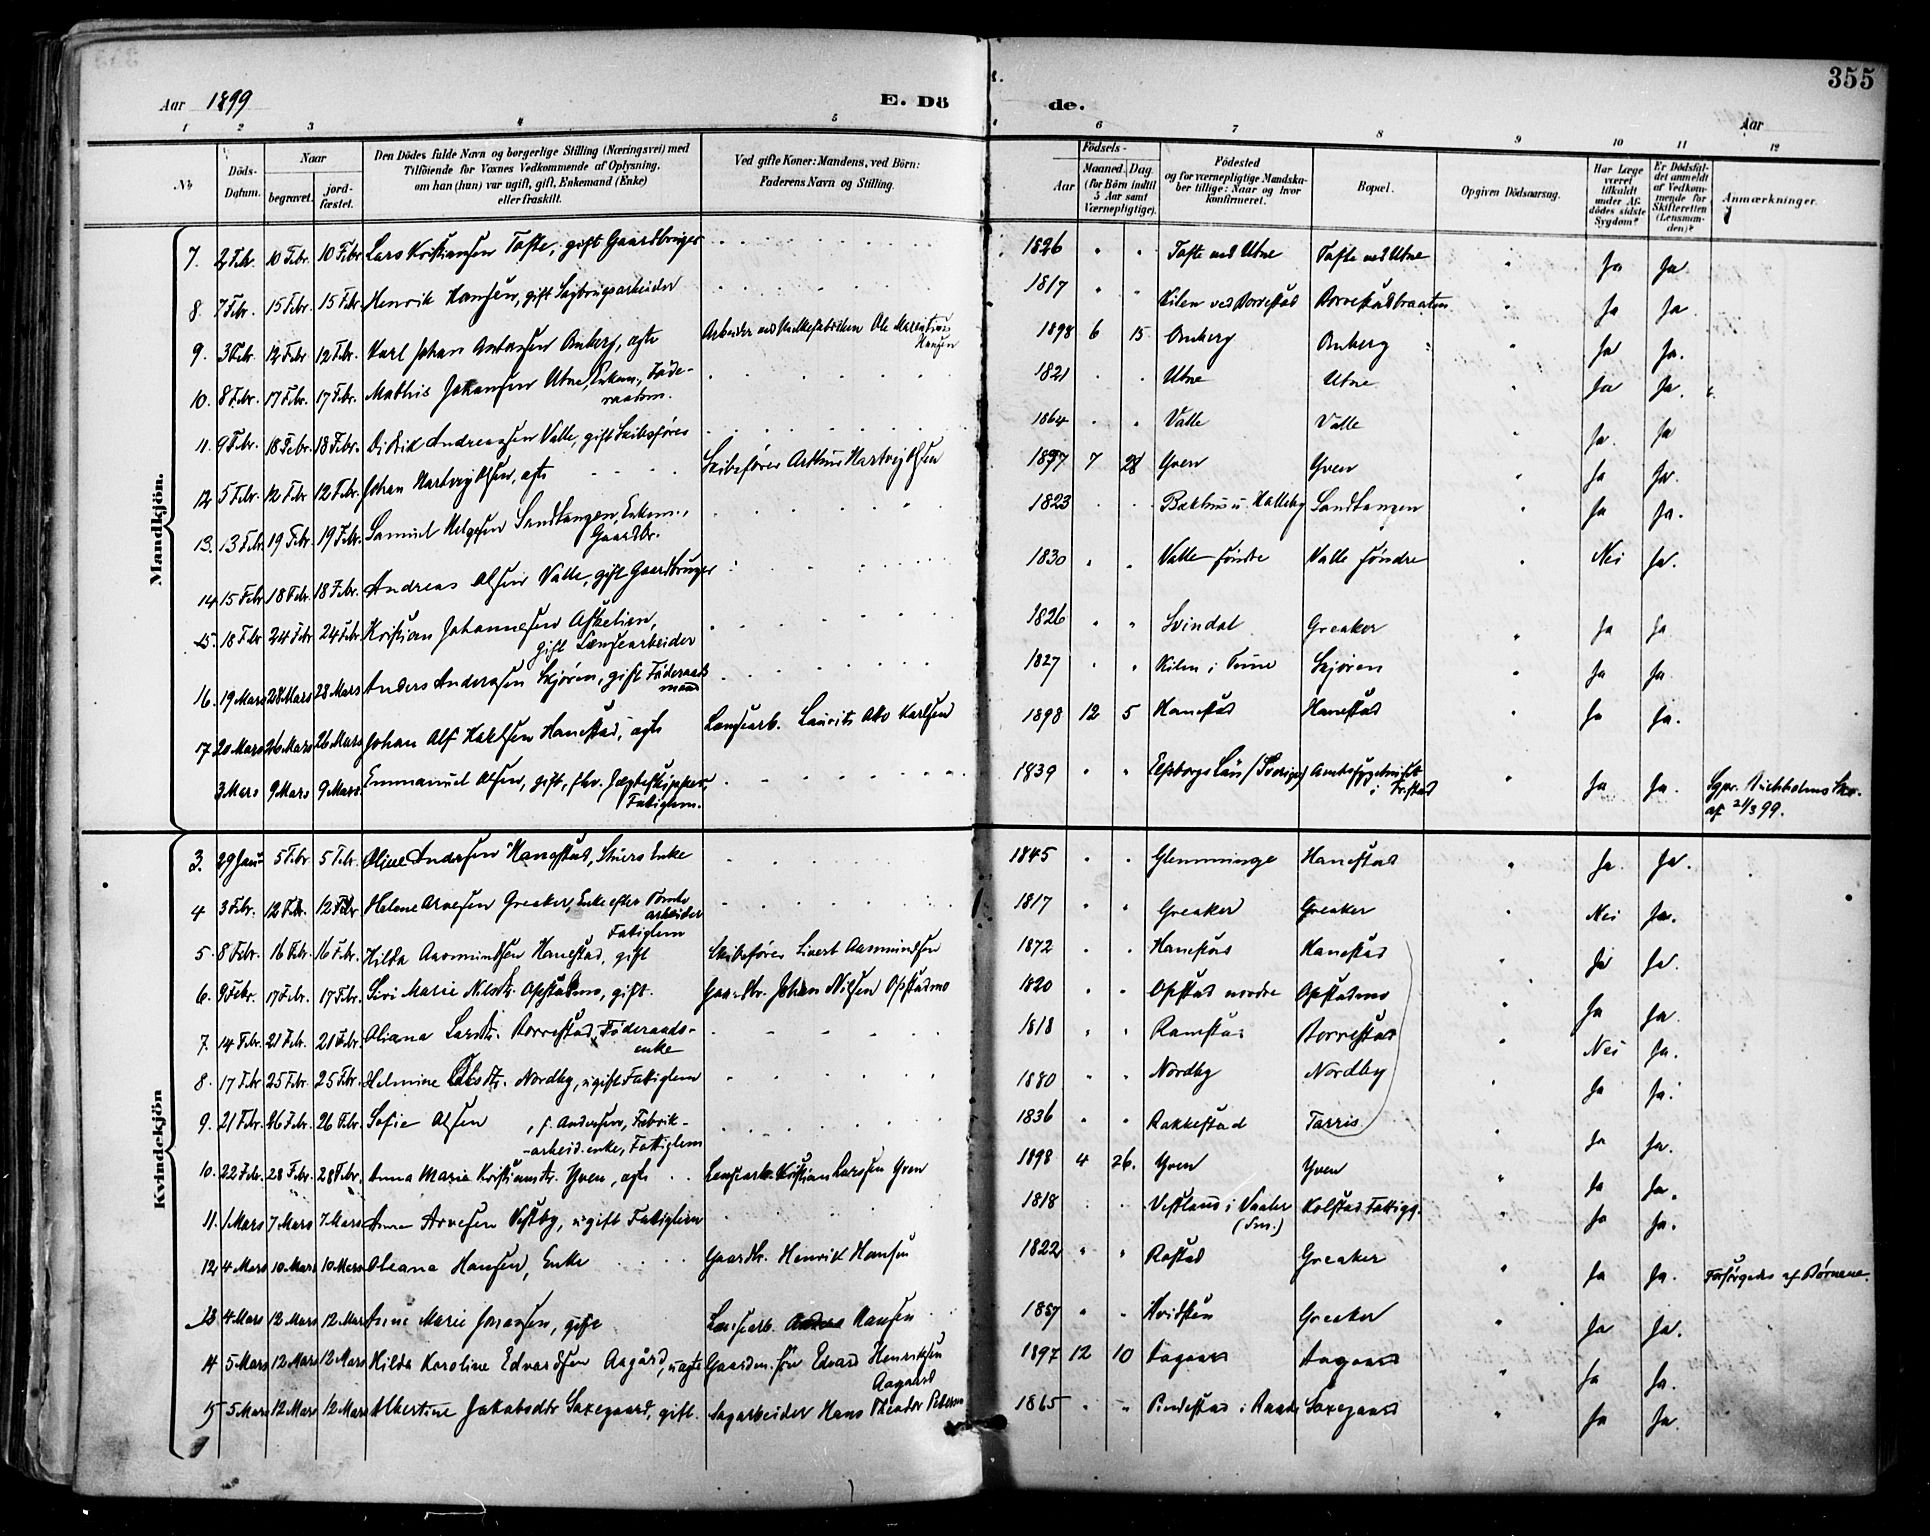 355
Aar 1899 E. Dö de. Aar
1 2 3 4 5 6 7 8 9 10 11 12
No Döds-Datum. Naar begravet. jordfæstet. Den Dödes fulde Navn og borgerlige Stilling (Næringsvei) med Tilföiende for Voxnes Vedkommende af Oplysning, om han (hun) var ugift, gift, Enkemand (Enke) eller fraskilt. Ved gifte Koner: Mandens, ved Börn: Faderens Navn og Stilling. Födsels- Aar Maaned. Dag (for Börn indtil 5 Aar samt Værnepligtige). Födested og for værnepligtige Mandskaber tillige: Naar og hvor konfirmeret. Bopæl. Opgiven Dödsaarsag. Har Læge været tilkaldt under Afdödes sidste Sygdom? Er Dödsfaldet anmeldt af Vedkommende for Skifteretten (Lensmanden)? Anmærkninger.
Mandkjön.
7. 2 Febr. 10 Febr. 10 Febr. Lars Kristiansen Tofte, gift Gaardbruger 1826 " " Tofte ved Utne Tofte ved Utne " Ja Ja.
8. 7 Febr. 15 Febr. 15 Febr. Henrik Hansen, gift Sagbrugsarbeider 1817 " " Kilen ved Borrestad Borrestadbraaten " Ja Ja.
9. 3 Febr. 12 Febr. 12 Febr. Karl Johan Antonsen Omberg, ægte Arbeider ved Ole Hansen 1898 6 15 Omberg Omberg " Ja Ja.
10. 8 Febr. 17 Febr. 17 Febr. Mathis Johansen Utne, Enkem., Föderaadsm. 1821 Utne Utne " Ja Ja.
11. 9 Febr. 18 Febr. 18 Febr. Didrik Andreassen Valle, gift Skibsförer 1864 Valle Valle " Ja. Ja
12 5 Febr. 12 Febr. 12 Febr. Johan Hartvigsen, ægte Skibsförer Arthur Hartvigsen 1897 7 28 Yven Yven " Ja Ja.
13. 13 Febr. 19 Febr. 19 Febr. Samuel Helgesen Sandtangen, Enkem., Gaardbr. 1823 Bakhus u. Halleby Sandtangen " Ja Ja.
14 15 Febr 18 Febr. 18 Febr. Andreas Olsen Valle, gift Gaardbruger 1830 " " Valle søndre Valle søndre " Nei Ja.
15. 18 Febr 24 Febr 24 Febr. Kristian Johannesen Askelien, gift Lænsearbeider 1826 " " Svindal Greaker " Ja Ja
16. 19 Mars 28 Mars 28 Mars Anders Andersen Skjøren, gift Föderaadsmand 1827 " " Kilen i Tune Skjøren " Ja Ja.
17 20 Mars 26 Mars 26 Mars Johan Alf Karlsen Hanestad, ægte Lensearb. Laurits Otto Karlsen 1898 12 5 Hanestad Hanestad " Ja Ja.
3 Mars 9 Mars 9 Mars. Emmanuel Olsen, gift, fhv. Jægteskipper, Fattiglem. 1839 " " Elfsborgs Län (Sverige) Amtssygehuset i Fr.stad " Ja Ja. Sgpr. af 21/3 99.
Kvindekjön
3. 29 Janr 5 Febr 5 Febr. Oline Andersen Hanestad, Enke 1845 " " Glemminge Hanestad " Ja. Ja.
4 3 Febr. 12 Febr. 12 Febr. Helene Arnesen Greaker, Enke efter Tomtearbeider Fattiglem 1817 " " Greaker Greaker " Nei Ja.
5 8 Febr. 16 Febr. 16 Febr. Hilda Aasmundsen Hanestad, gift Skibsförer Sivert Aasmundsen 1872 " " Hanestad Hanestad " Ja Ja.
6. 9 Febr. 17 Febr. 17 Febr. Siri Marie Nilsdtr. Opstadmo, gift. Gaardbr. Johan Nilsen Opstadmo 1820 " " Opstad nordre Opstadmo " Ja Ja.
7. 14 Febr. 21 Febr. 21 Febr. Oliana Larsdtr. Borrestad, Föderaads-enke 1818 " " Ramstad Borrestad " Nei Ja.
8 17 Febr 25 Febr 25 Febr. Helmine Olsdtr. Nordby, ugift Fattiglem 1880 " " Nordby Nordby " Ja Ja.
9. 21 Febr. 26 Febr. 26 Febr. Sofie Olsen, f. Andersen, Fabrik-arbeid.enke, Fattiglem 1836 " " Rakkestad Tarris " Ja Ja.
10. 22 Febr. 28 Febr. 28 Febr. Anna Marie Kristiansdtr. Yven, ægte Lensearb. Kristian Larssen Yven 1898 4 26. Yven Yven " Ja Ja.
11. 1 Mars 7 Mars 7 Mars Anne Arnesen Vestby, ugift Fattiglem 1818 Vestland i Vaaler (Sm.) Kolstad Fattigg. " Ja Ja.
12 4 Mars 10 Mars 10 Mars Oleana Hansen, Enke Gaardbr. Henrik Hansen 1822 " " Rostad Greaker " Ja Ja. Forsørgedes af Børnene.
13 4 Mars 12 Mars 12 Mars Anne Marie Johansen, gift Lensearb. Hansen 1857 " " Hvidsten Greaker Ja Ja.
14 5 Mars 12 Mars 12 Mars Hilda Karoline Edvardsen Aagård, uægte Gaardm. søn Edvard Henriksen Aagaard 1897 12 10 Aagaard Aagaard " Ja Ja.
15 5 Mars 12 Mars 12 Mars Albertine Jakobsdtr Saxegaard, gift. Sagarbeider Hans Theodor Petersen 1865 " " i Raade Saxegaard " Ja Ja